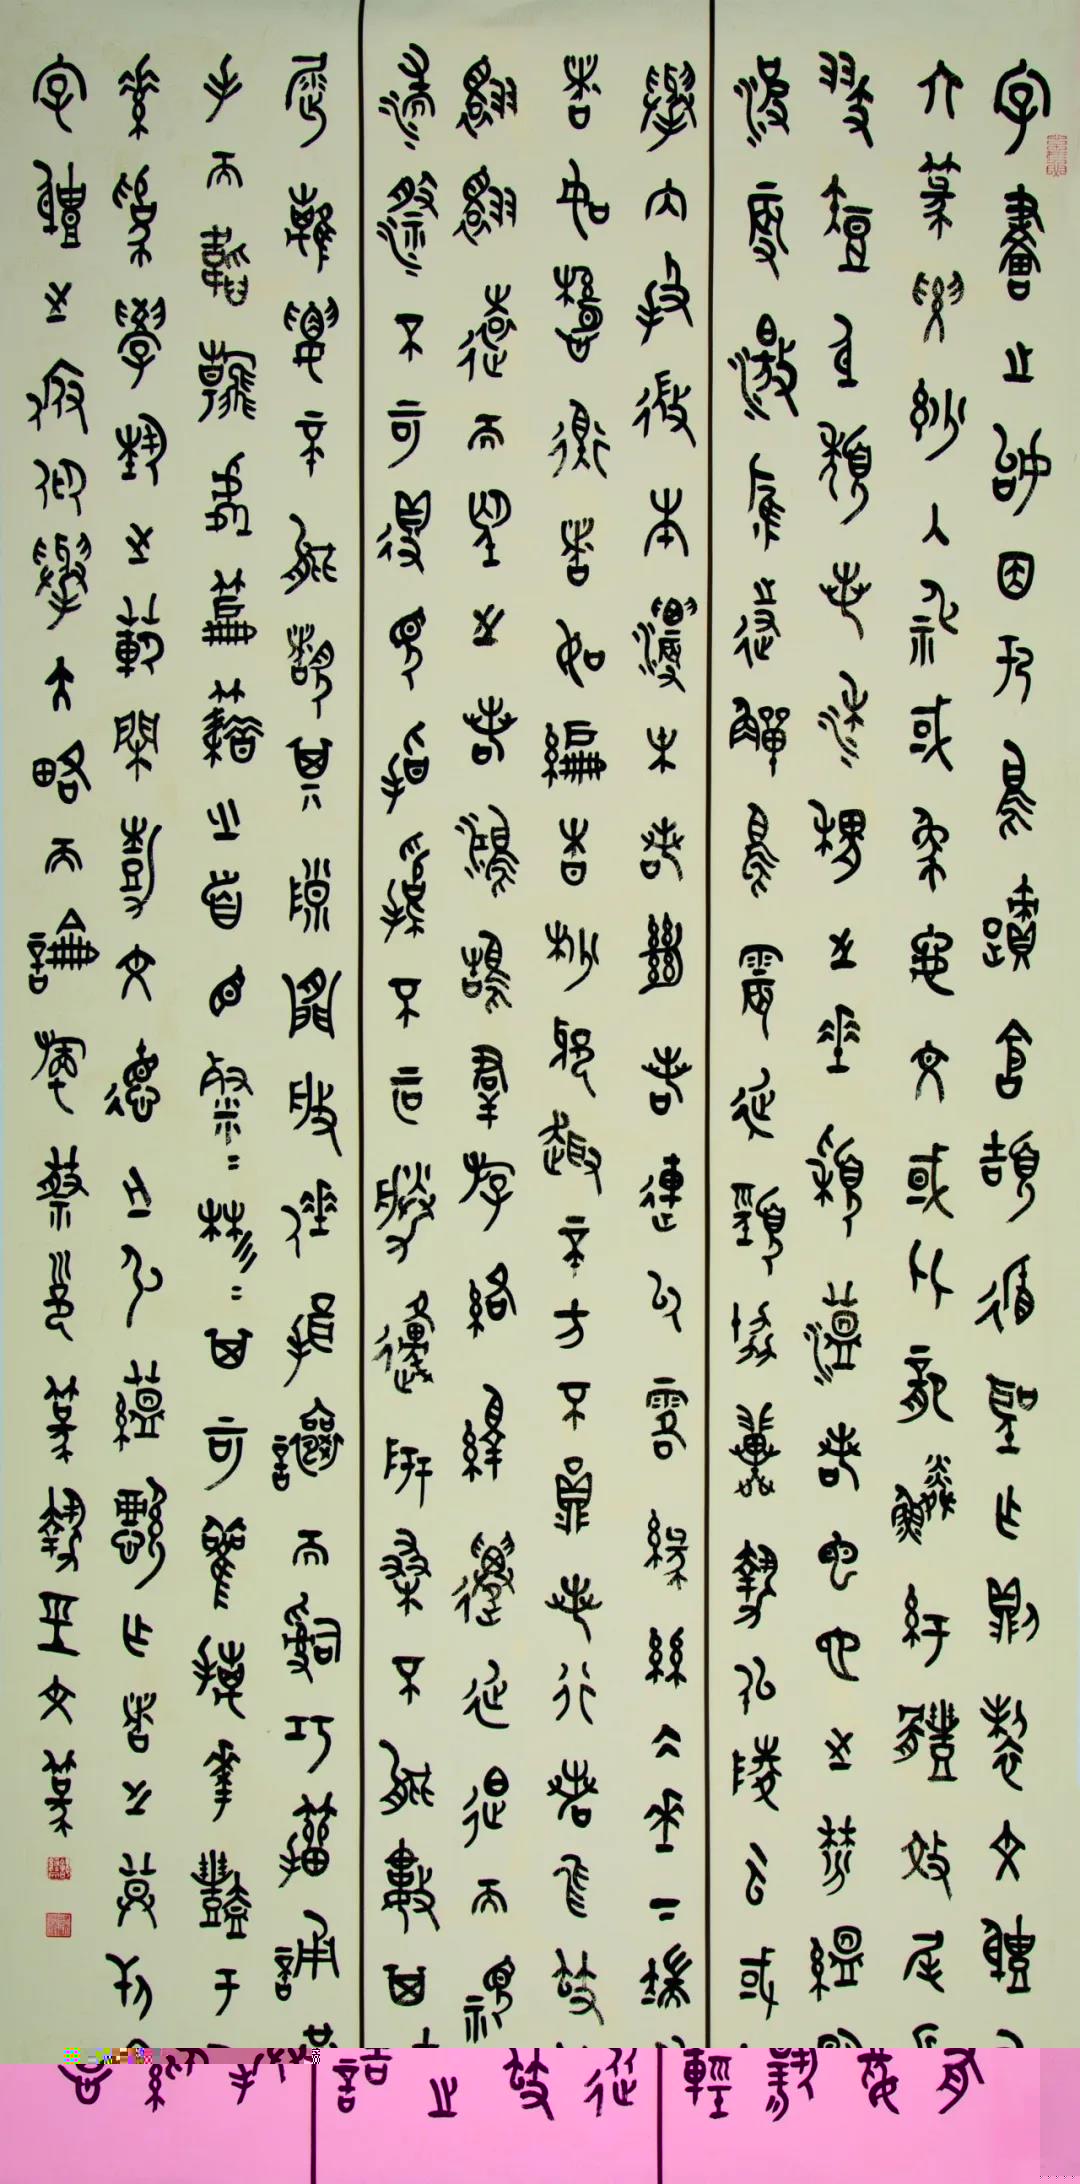 字畫之始因於鳥跡倉頡循聖作則制文體有
六篆巧妙入神或象龜文或比龍鱗紓體效尾長
翅短身頹若黍稷之垂穎蘊若蟲蛇之棼縕
波振激鷹跱鳥震延頸協翼勢似陵雲或輕
舉內投微本濃末若絕若連似露緣絲凝垂下端從
者如懸衡者如編杳杪邪趣不方不圓若行若飛跂
翾翾遠而望之若鴻鵠群游絡繹遷延迫而視之
湍漈不可得見指撝不可勝原研桑不能數其詰
屈離婁不能睹其隙間般倕揖讓而辭巧籀誦拱
手而韜翰處篇籍之首目粲粲彬彬其可觀摛華豔於紈
素為學藝之範閑嘉文德之弘蘊懿作者之莫刊
字體之俯仰舉大略而論旃蔡邕篆勢全文篆